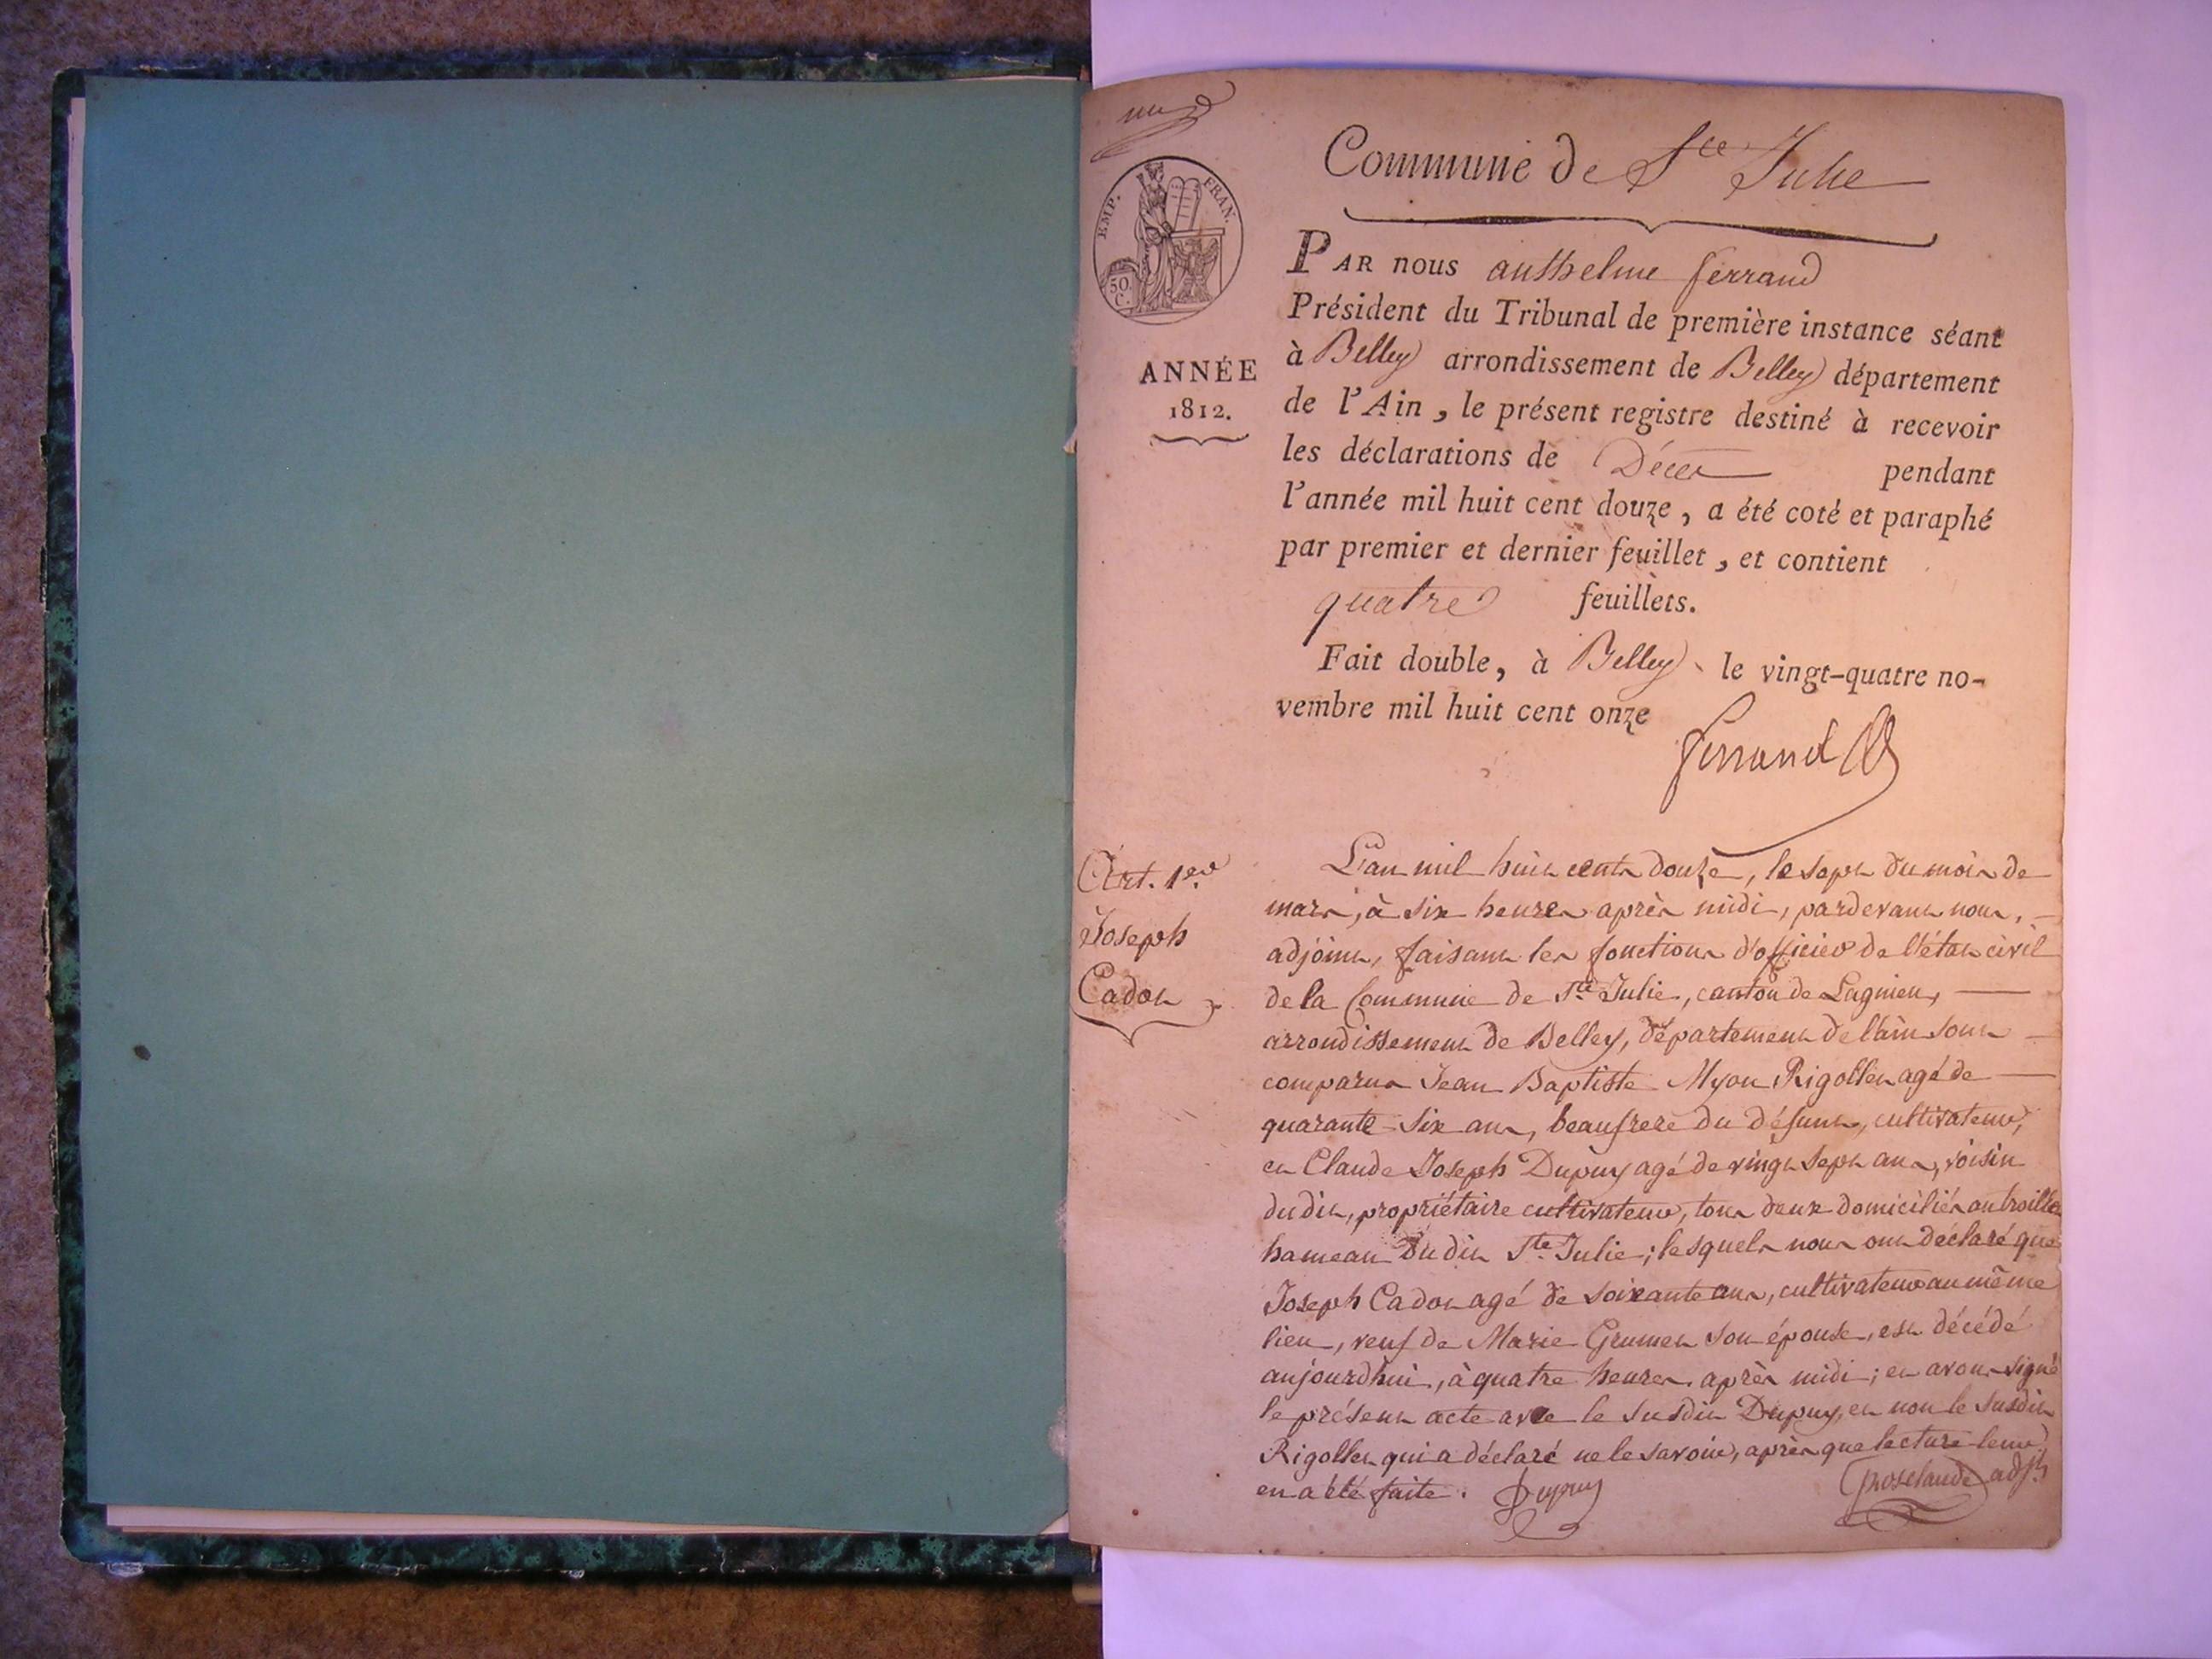 Commune de Ste Julie
EMP. FRAN.
50 C.
PAR nous anthelme ferrand
Président du Tribunal de première instance séant
à Belley arrondissement de Belley département
ANNÉE
1812.
de l'Ain, le présent registre destiné à recevoir
les déclarations de Décès pendant
l'année mil huit cent douze, a été coté et paraphé
par premier et dernier feuillet, et contient
quatre feuillets.
Fait double, à Belley le vingt-quatre no-
vembre mil huit cent onze
Ferrand
Art. 1er
Joseph
Cadot
L'an mil huit cent douze, le sept du mois de
mars, à six heures après midi, pardevant nous,
adjoint, faisant les fonctions d'officier de l'état civil
de la Commune de Ste Julie, canton de Lagnieu,
arrondissement de Belley, département de l'ain sont
comparus Jean Baptiste Myon Rigollet agé de
quarante six ans, beaufrere du défunt, cultivateur,
et Claude Joseph Dupuy agé de vingt sept ans, voisin
dudit, propriétaire cultivateur, tous deux domiciliés
hameau dudit Ste Julie; lesquels nous ont déclaré que
Joseph Cadot agé de soixante ans, cultivateur au même
lieu, veuf de Marie Grumet son épouse, est décédé
aujourdhui, à quatre heures après midi; et avons signé
le présent acte avec le susdit Dupuy, et non le susdit
Rigollet qui a déclaré ne le savoir, après que lecture leur
en a été faite. Dupuy adjt